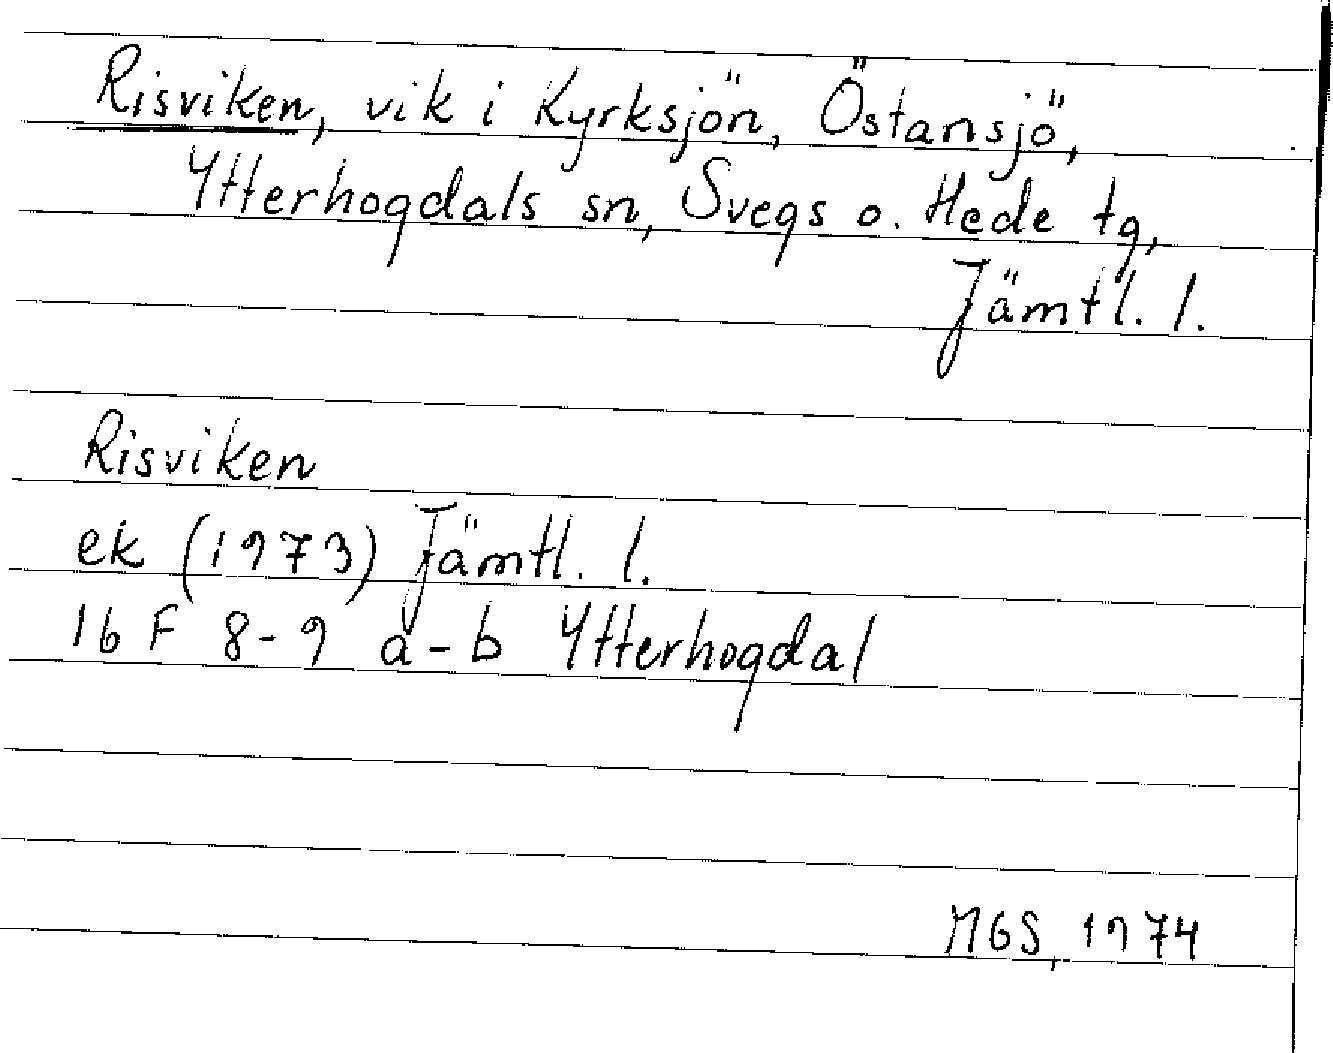 Risviken, vik i Kyrksjön, Östansjö,
Ytterhogdals sn, Svegs o. Hede tg,
Jämtl. l.
Risviken
ek (1973) Jämtl. l.
16 F 8-9 a-b Ytterhogdal
MGS, 1974